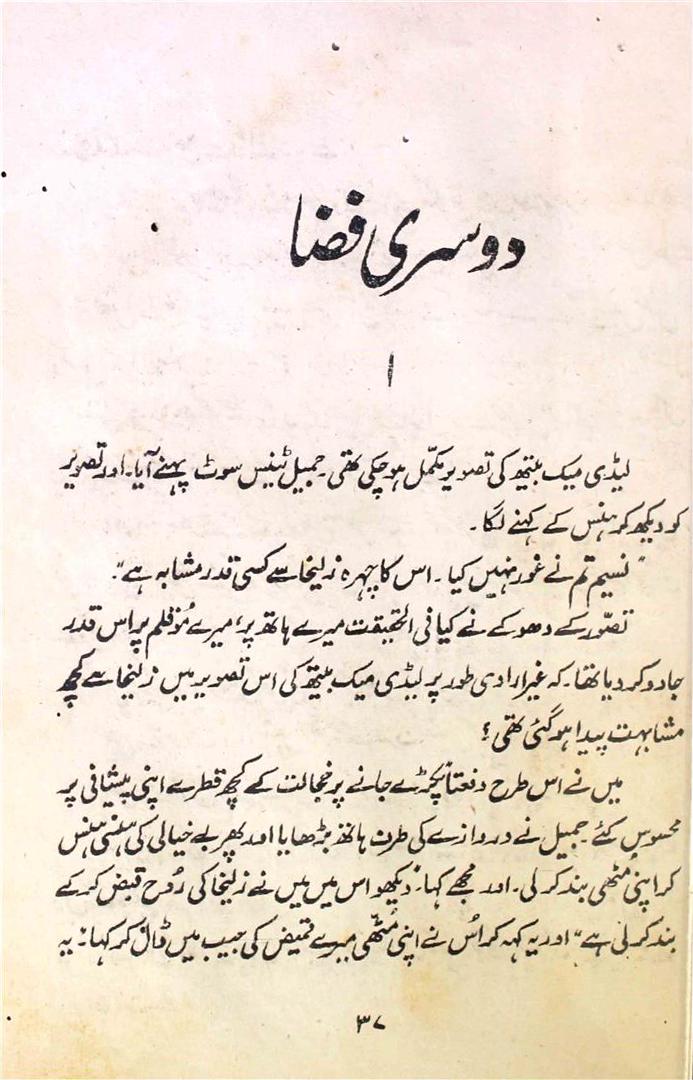 دوسری فضا
۱
لیڈی میک بیتھ کی تصویر مکمّل ہوچکی تھی۔ جمیل ٹینس سوٹ پہنے آیا۔ اور تصویر
کو دیکھ کر ہنس کے کہنے لگا۔
"نسیم تم نے غور نہیں کیا۔ اس کا چہرہ زلیخا سے کسی قدر مشابہ ہے"۔
تصوّر کے دھوکے نے کیا فی الحقیقت میرے ہاتھ پر، میرے مُو قلم پر اس قدر
جادو کر دیا تھا۔ کہ غیر ارادی طور پر لیڈی میک بیتھ کی اس تصویر میں زلیخا سے کچھ
مشابہت پیدا ہوگئی تھی؟
میں نے اس طرح دفعتاً پکڑے جانے پر خجالت کے کچھ قطرے اپنی پیشانی پر
محسوس کئے۔ جمیل نے دروازے کی طرف ہاتھ بڑھایا اور پھر بے خیالی کی ہنسی ہنس
کر اپنی مُٹھی بند کرلی۔ اور مجھے کہا: "دیکھو اس میں میں نے زلیخا کی رُوح قبض کرکے
بند کرلی ہے" اور یہ کہہ کر اُس نے اپنی مُٹھی میرے قمیض کی جیب میں ڈال کر کہا: "یہ
۳۷